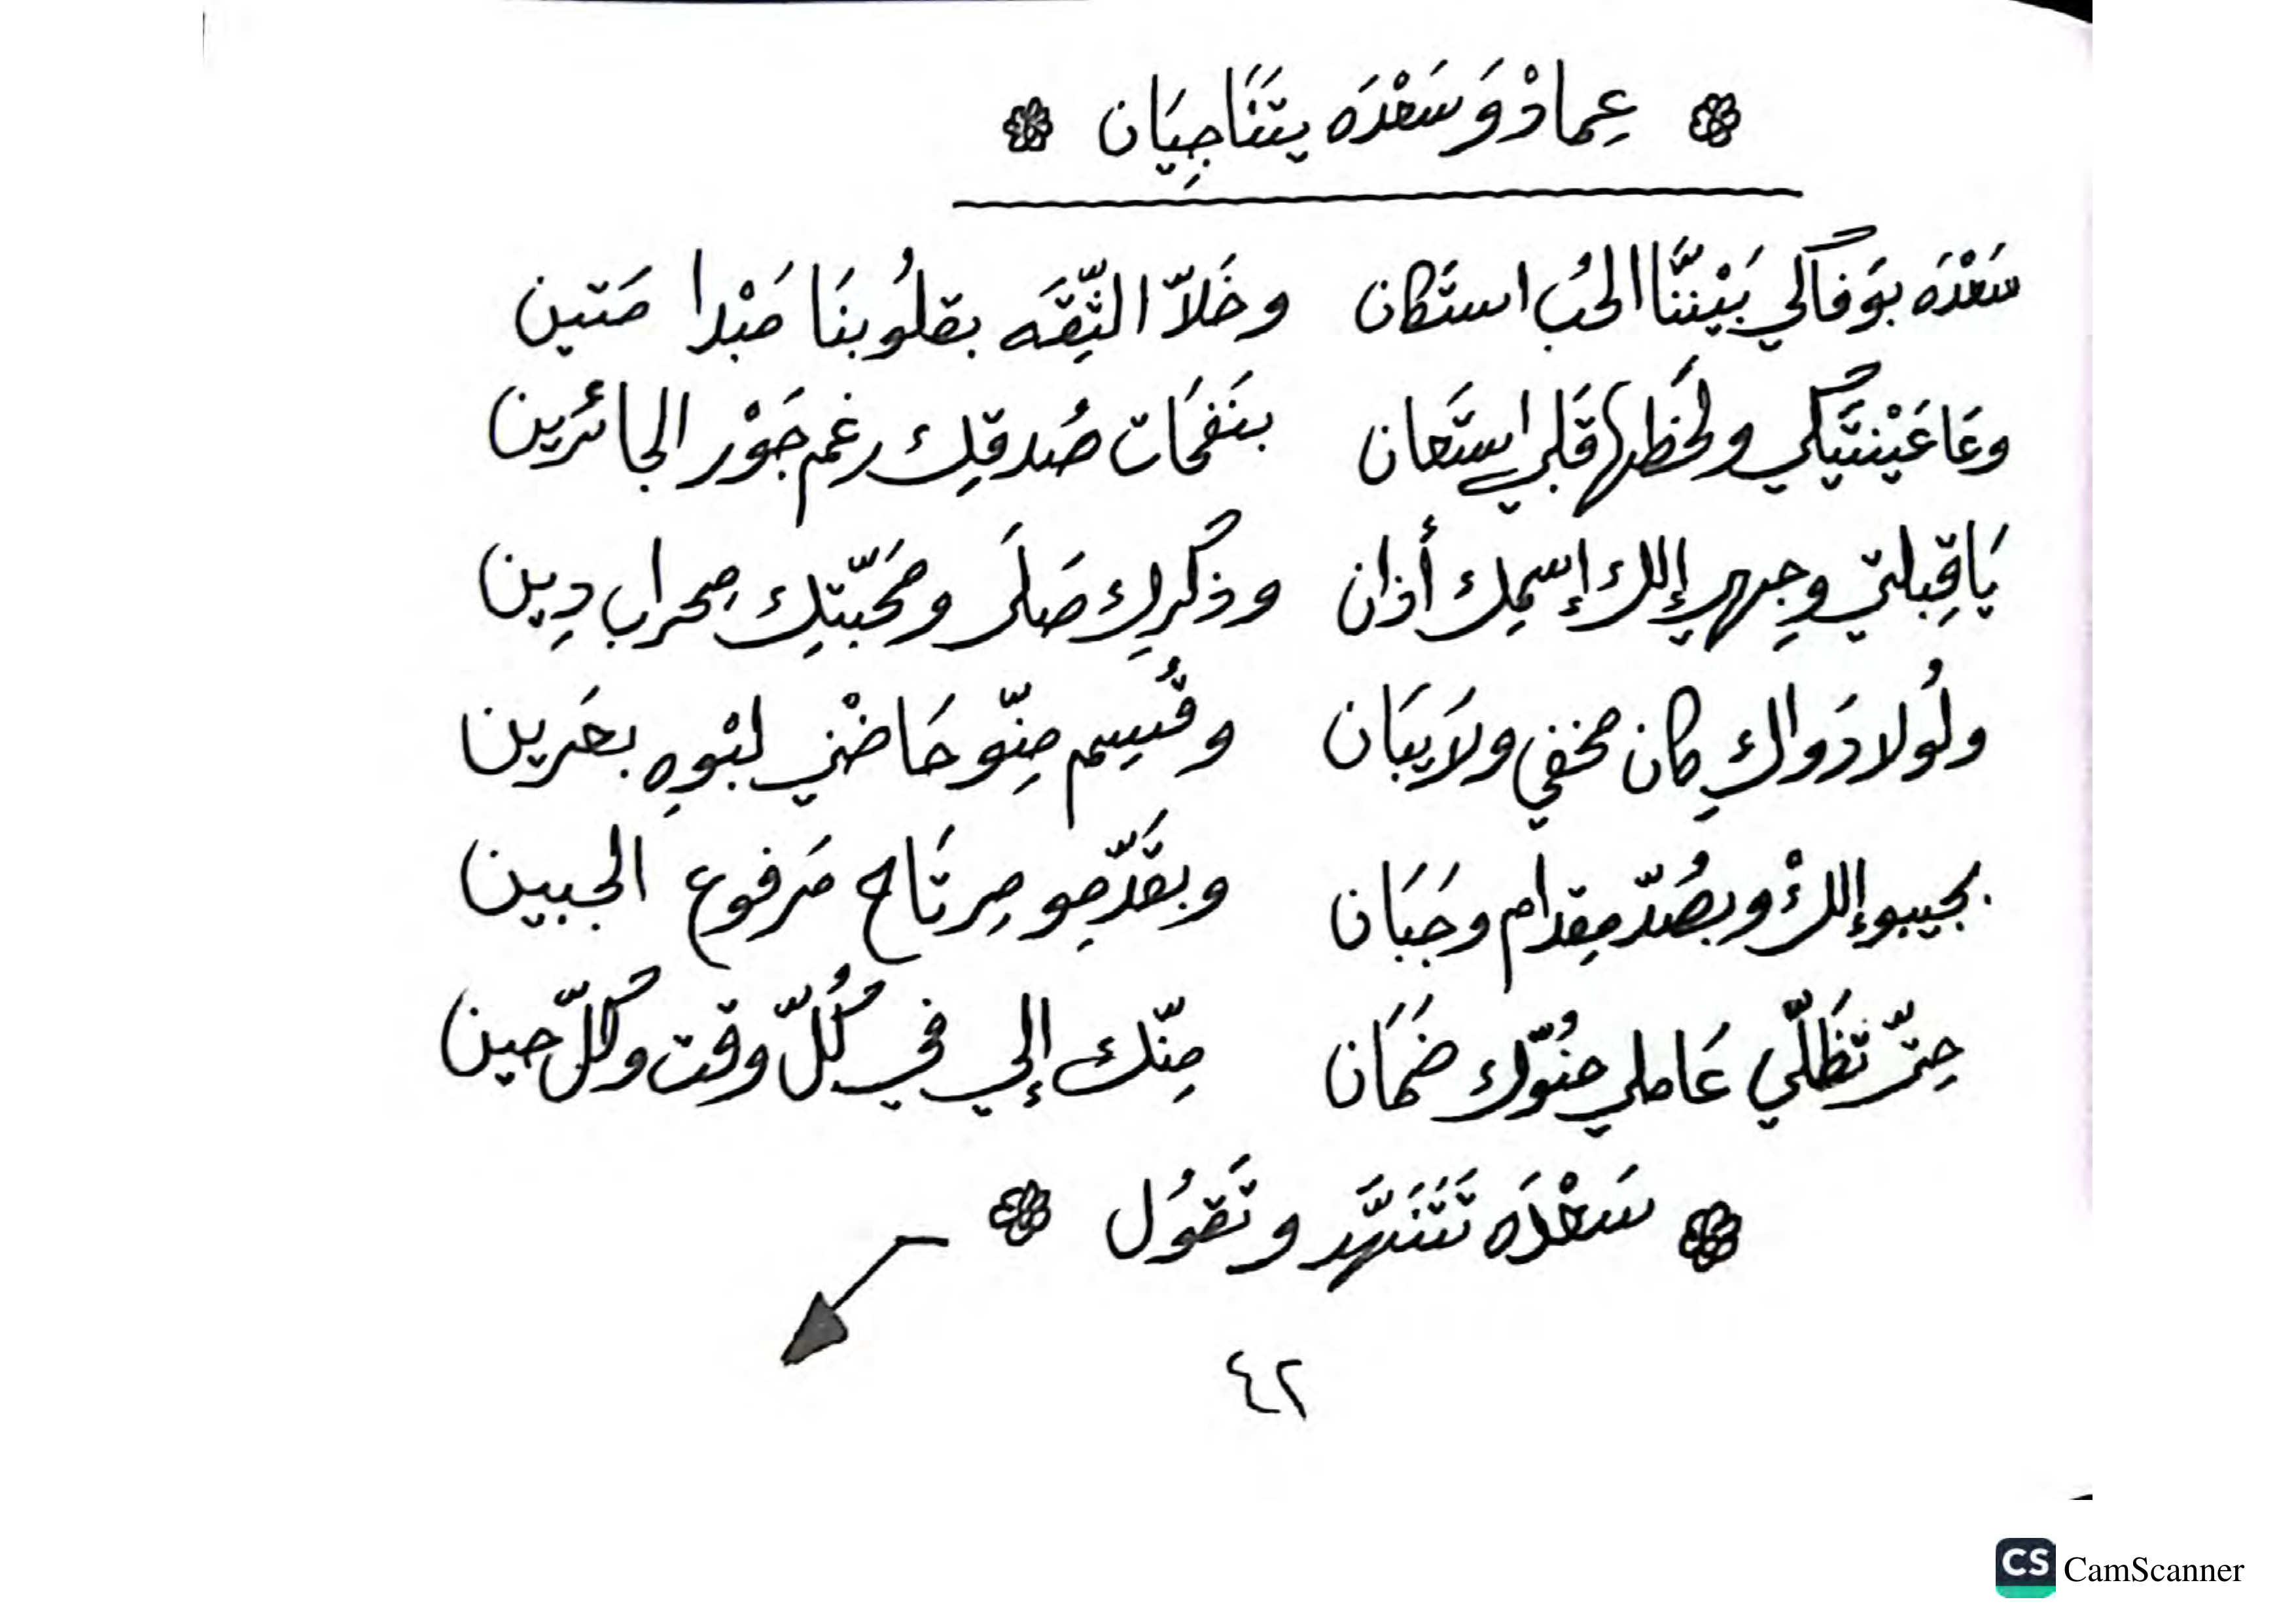 عِمادْ وَ سَعْدَه يتَنَاجِيَان
سَعْدَه بوَفَالي بَيْننَّا الحُب استَكان وخَلاّ الثِّقَه بقلُوبنَا مَبْدا مَتين
وعَا عَيْنتَيَكي ولَحَظها قَلبي استَعان بنَفحَات صُدقِك رغم جَوْر الجائرين
يَا قِبلتي وجِهي إلك إسمِك أذان وذكرِك صَلَى ومَحَبّتِك مِحراب دِين
ولُولا دَواكِ كان مخفي ولاَ يبَان وقُسِم مِنّو حَاضْني لبْوِه بعَرين
بجيبو إلكْ وبصُدّ مِقدام وجَبَان وبقَدّمِو مِرتَاح مَرفوع الجبين
حِتّى تظَلّي عَاملي حنُوّك ضَمَان مِنّك إلي في كُلّ وقت وكلّ حين
سَعْدَه تَتَنَهَّد وتَقوُل
٤٢
CS CamScanner